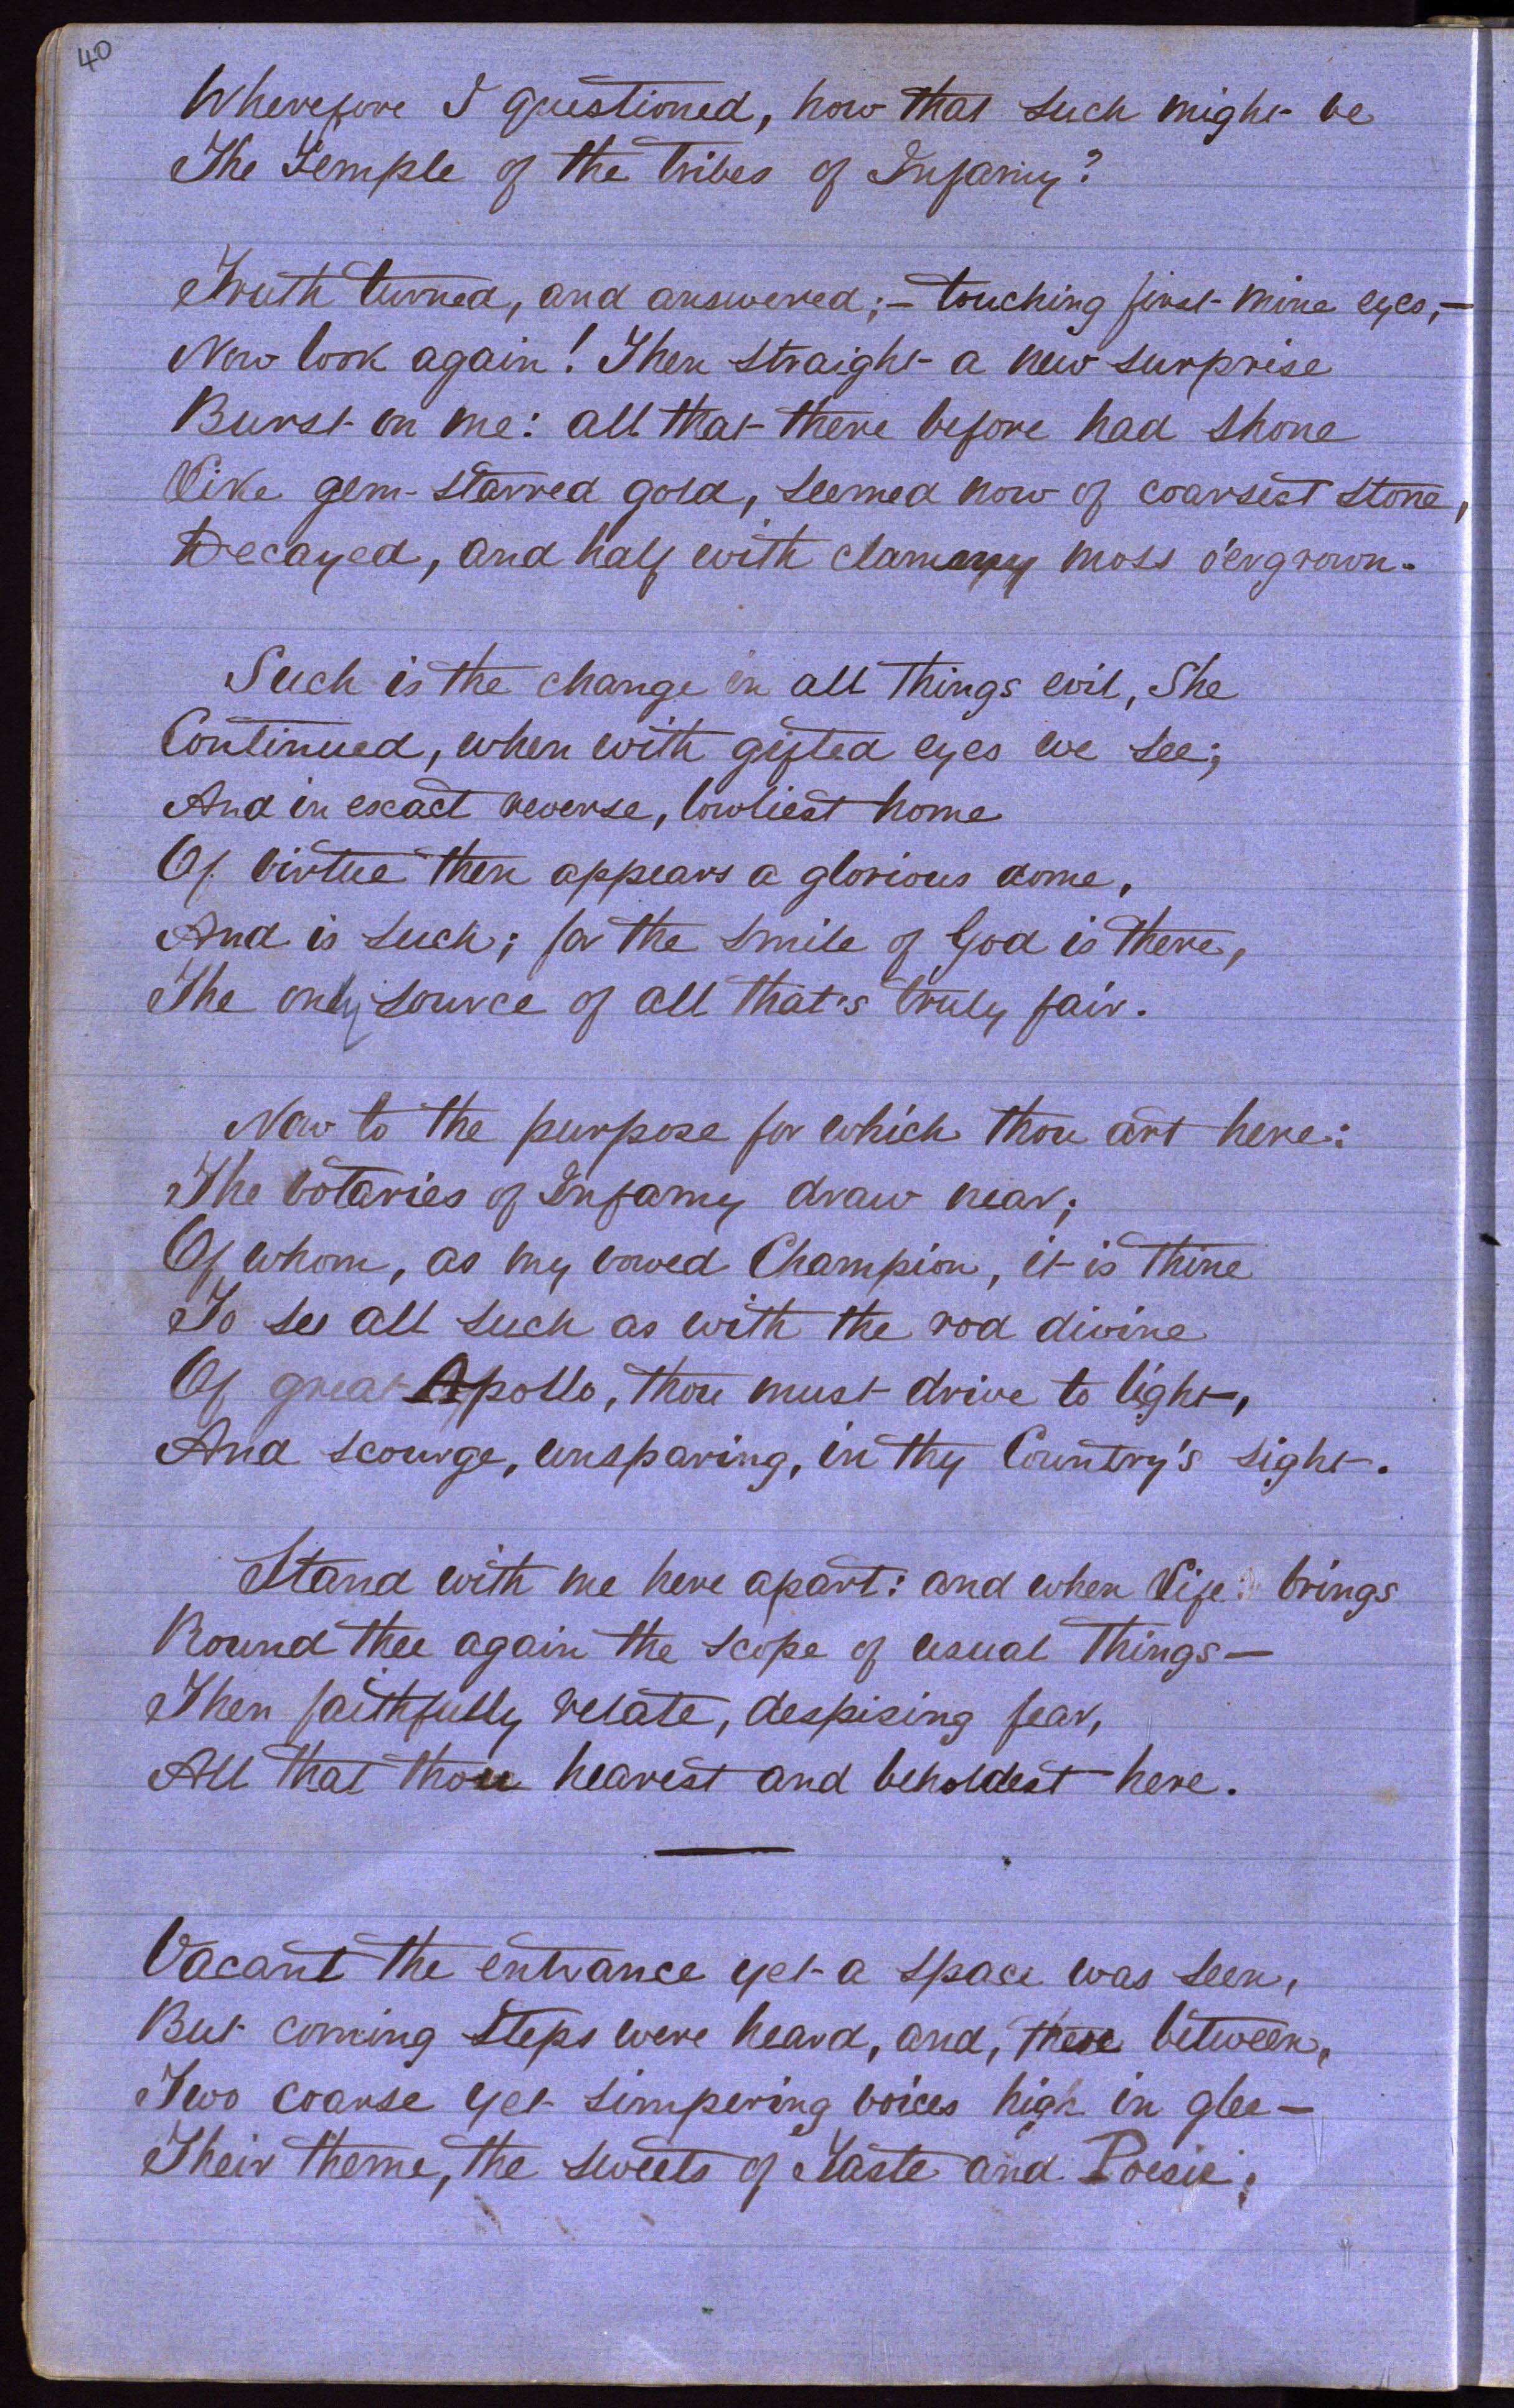 40
Wherefore I questioned, how that such might be
The Temple of the tribes of Infamy?
Truth turned, and answered; – touching first mine eyes, –
Now look again! Then straight a new surprise
Burst on me: all that there before had shone
Like gem-starred gold, seemed now of coarsest stone,
Decayed, and half with clammy moss o'ergrown.
Such is the change in all things evil, She
Continued, when with gifted eyes we see;
And in exact reverse, lowliest home
Of virtue then appears a glorious dome,
And is such; for the smile of God is there,
The only source of all that's truly fair.
Now to the purpose for which thou art here:
The votaries of Infamy draw near;
Of whom, as my vowed Champion, it is thine
To see all such as with the rod divine
Of great Apollo, thou must drive to light,
And scourge, unsparing, in thy Country's sight.
Stand with me here apart: and when Life brings
Round thee again the scope of usual things —
Then faithfully relate, despising fear,
All that thou hearest and beholdest here.
Vacant the entrance yet a space was seen,
But coming steps were heard, and, there between,
Two coarse yet simpering voices high in glee —
Their theme, the sweets of Taste and Poesie;